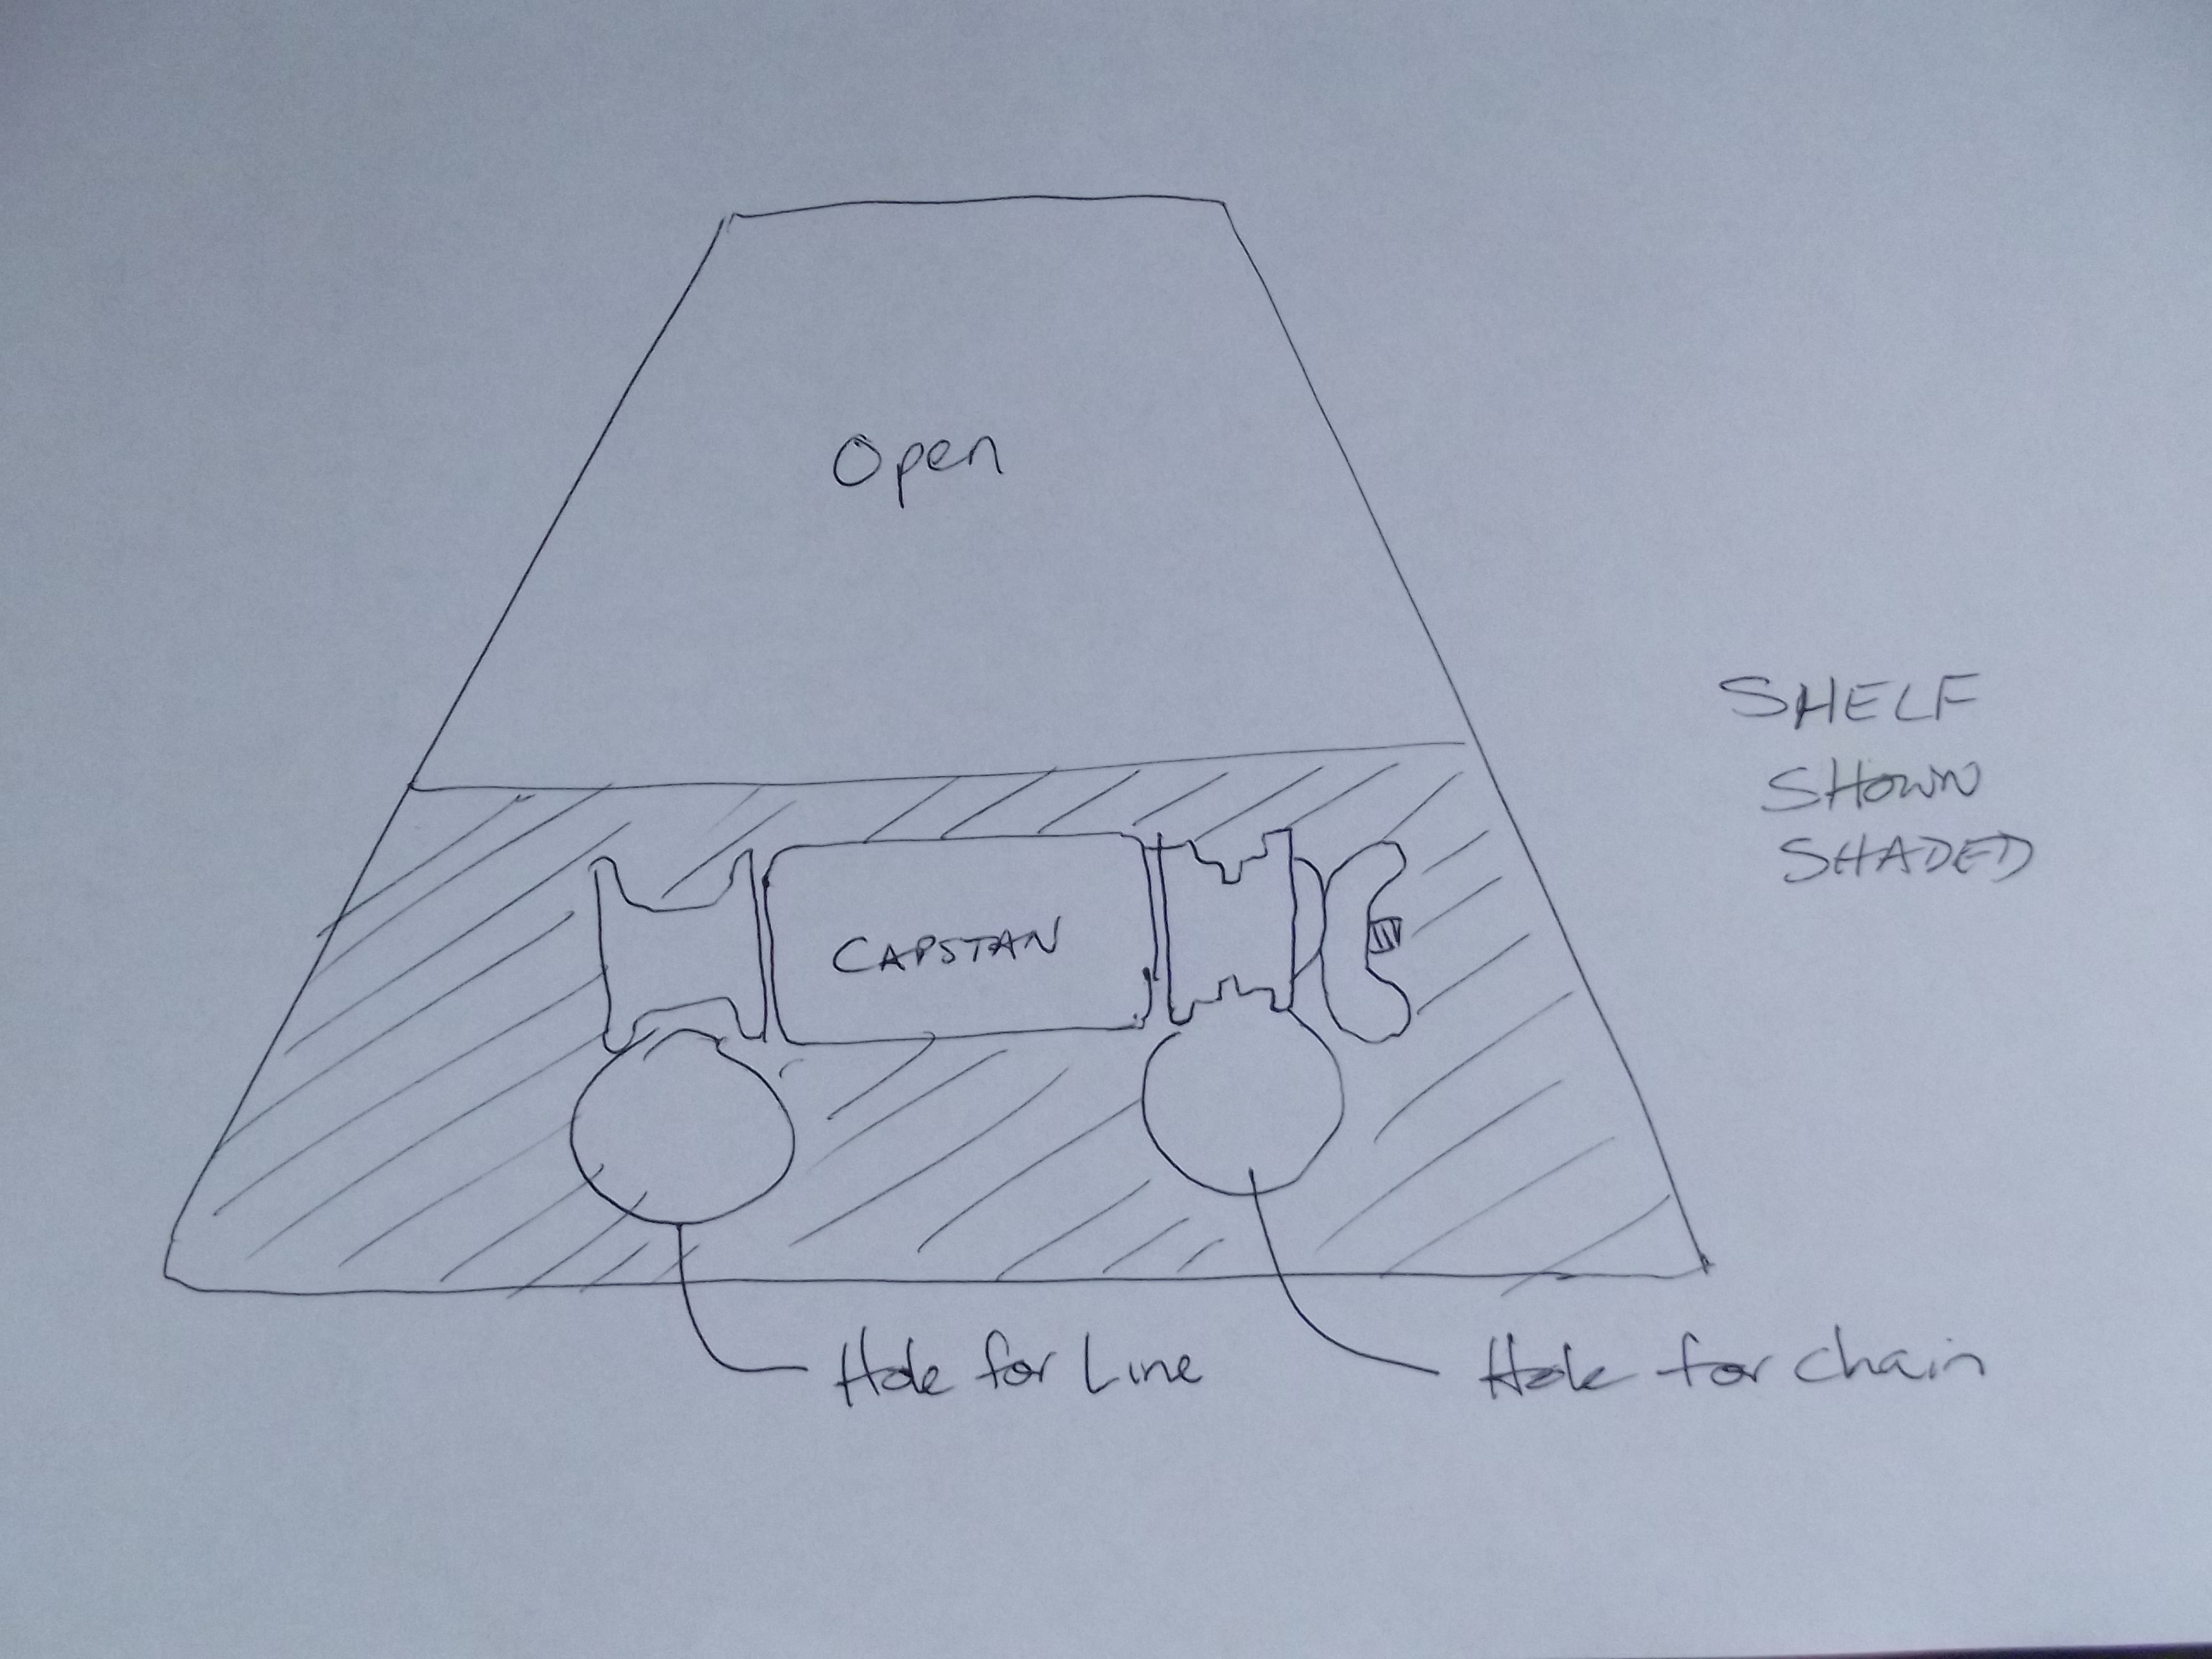 Open
SHELF
SHOWN
SHADED
CAPSTAN
Hole for Line
Hole for chain